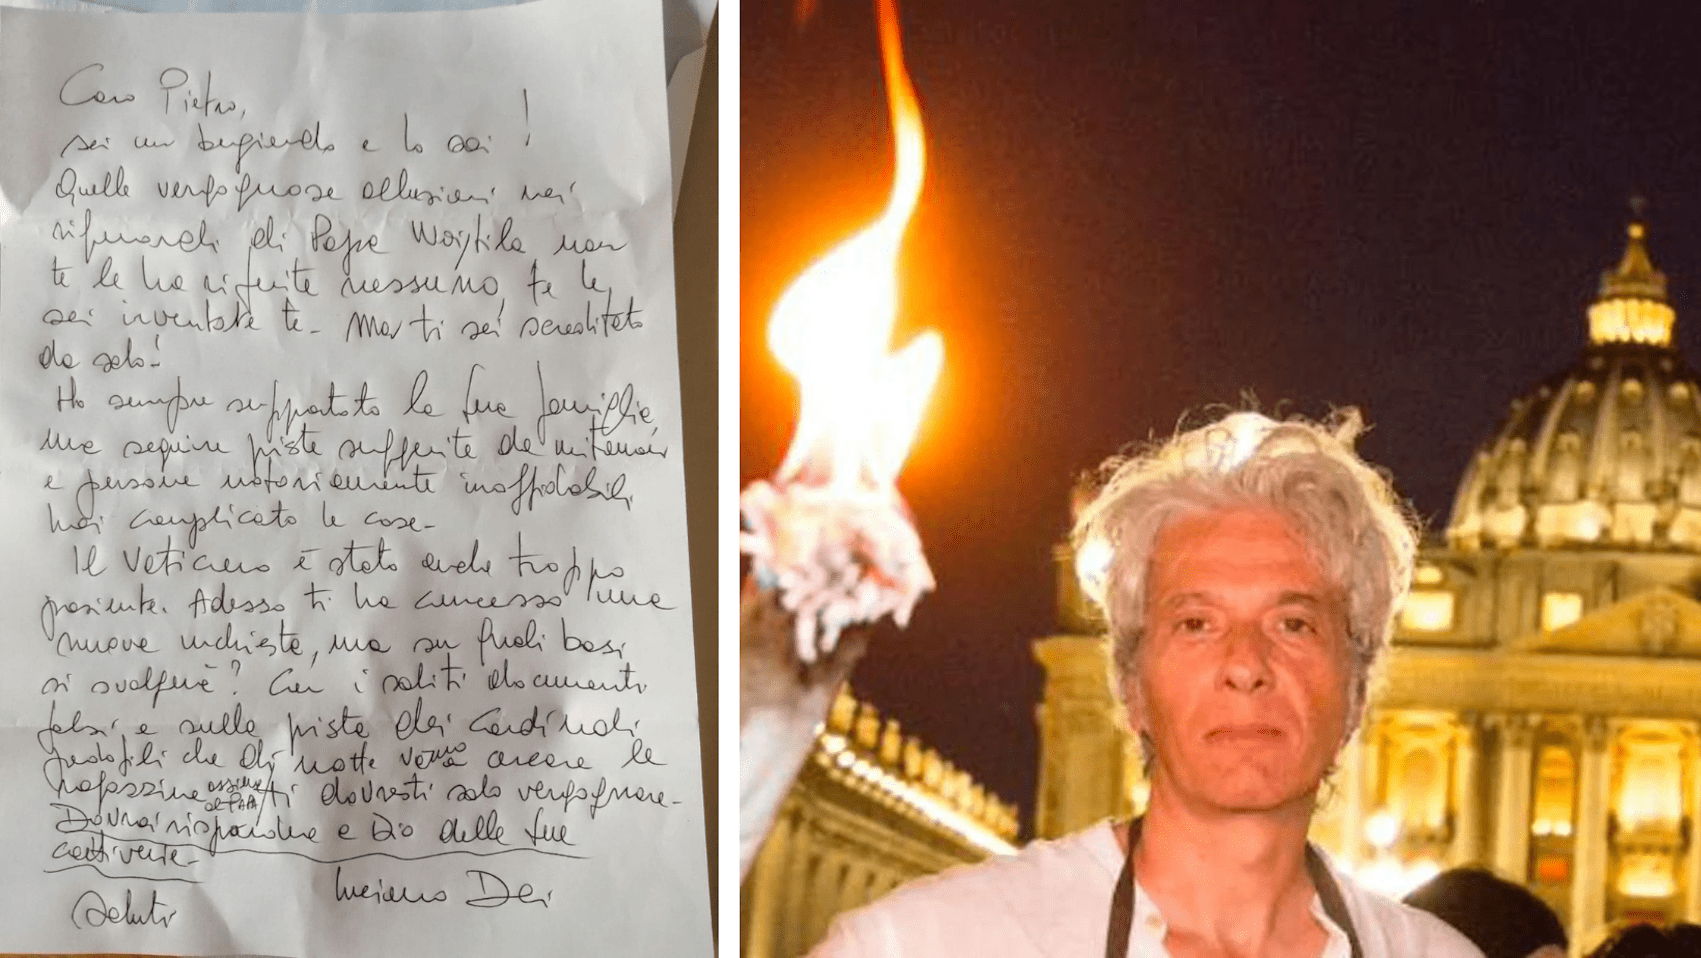 Caro Pietro,
sei un bugiardo e lo sai!
Quelle vergognose allusioni nei
riguardi di Papa Woijtila non
te le ha riferite nessuno, te le
sei inventate te - Ma ti sei screditato
da solo!
Ho sempre supportato la tua famiglia,
ma seguire piste suggerite da mitomani
e persone notoriamente inaffidabili
hai complicato le cose -
Il Vaticano è stato anche troppo
paziente. Adesso ti ha concesso una
nuova inchiesta, ma su quali basi
si svolgerà? Con i soliti documenti
falsi, e sulla pista dei Cardinali
pedofili che di notte vanno a cercare le
ragazzine assieme al PAPA, ti dovresti solo vergognare -
Dovrai rispondere a Dio delle tue
cattiverie -
Saluti Luciano Dei